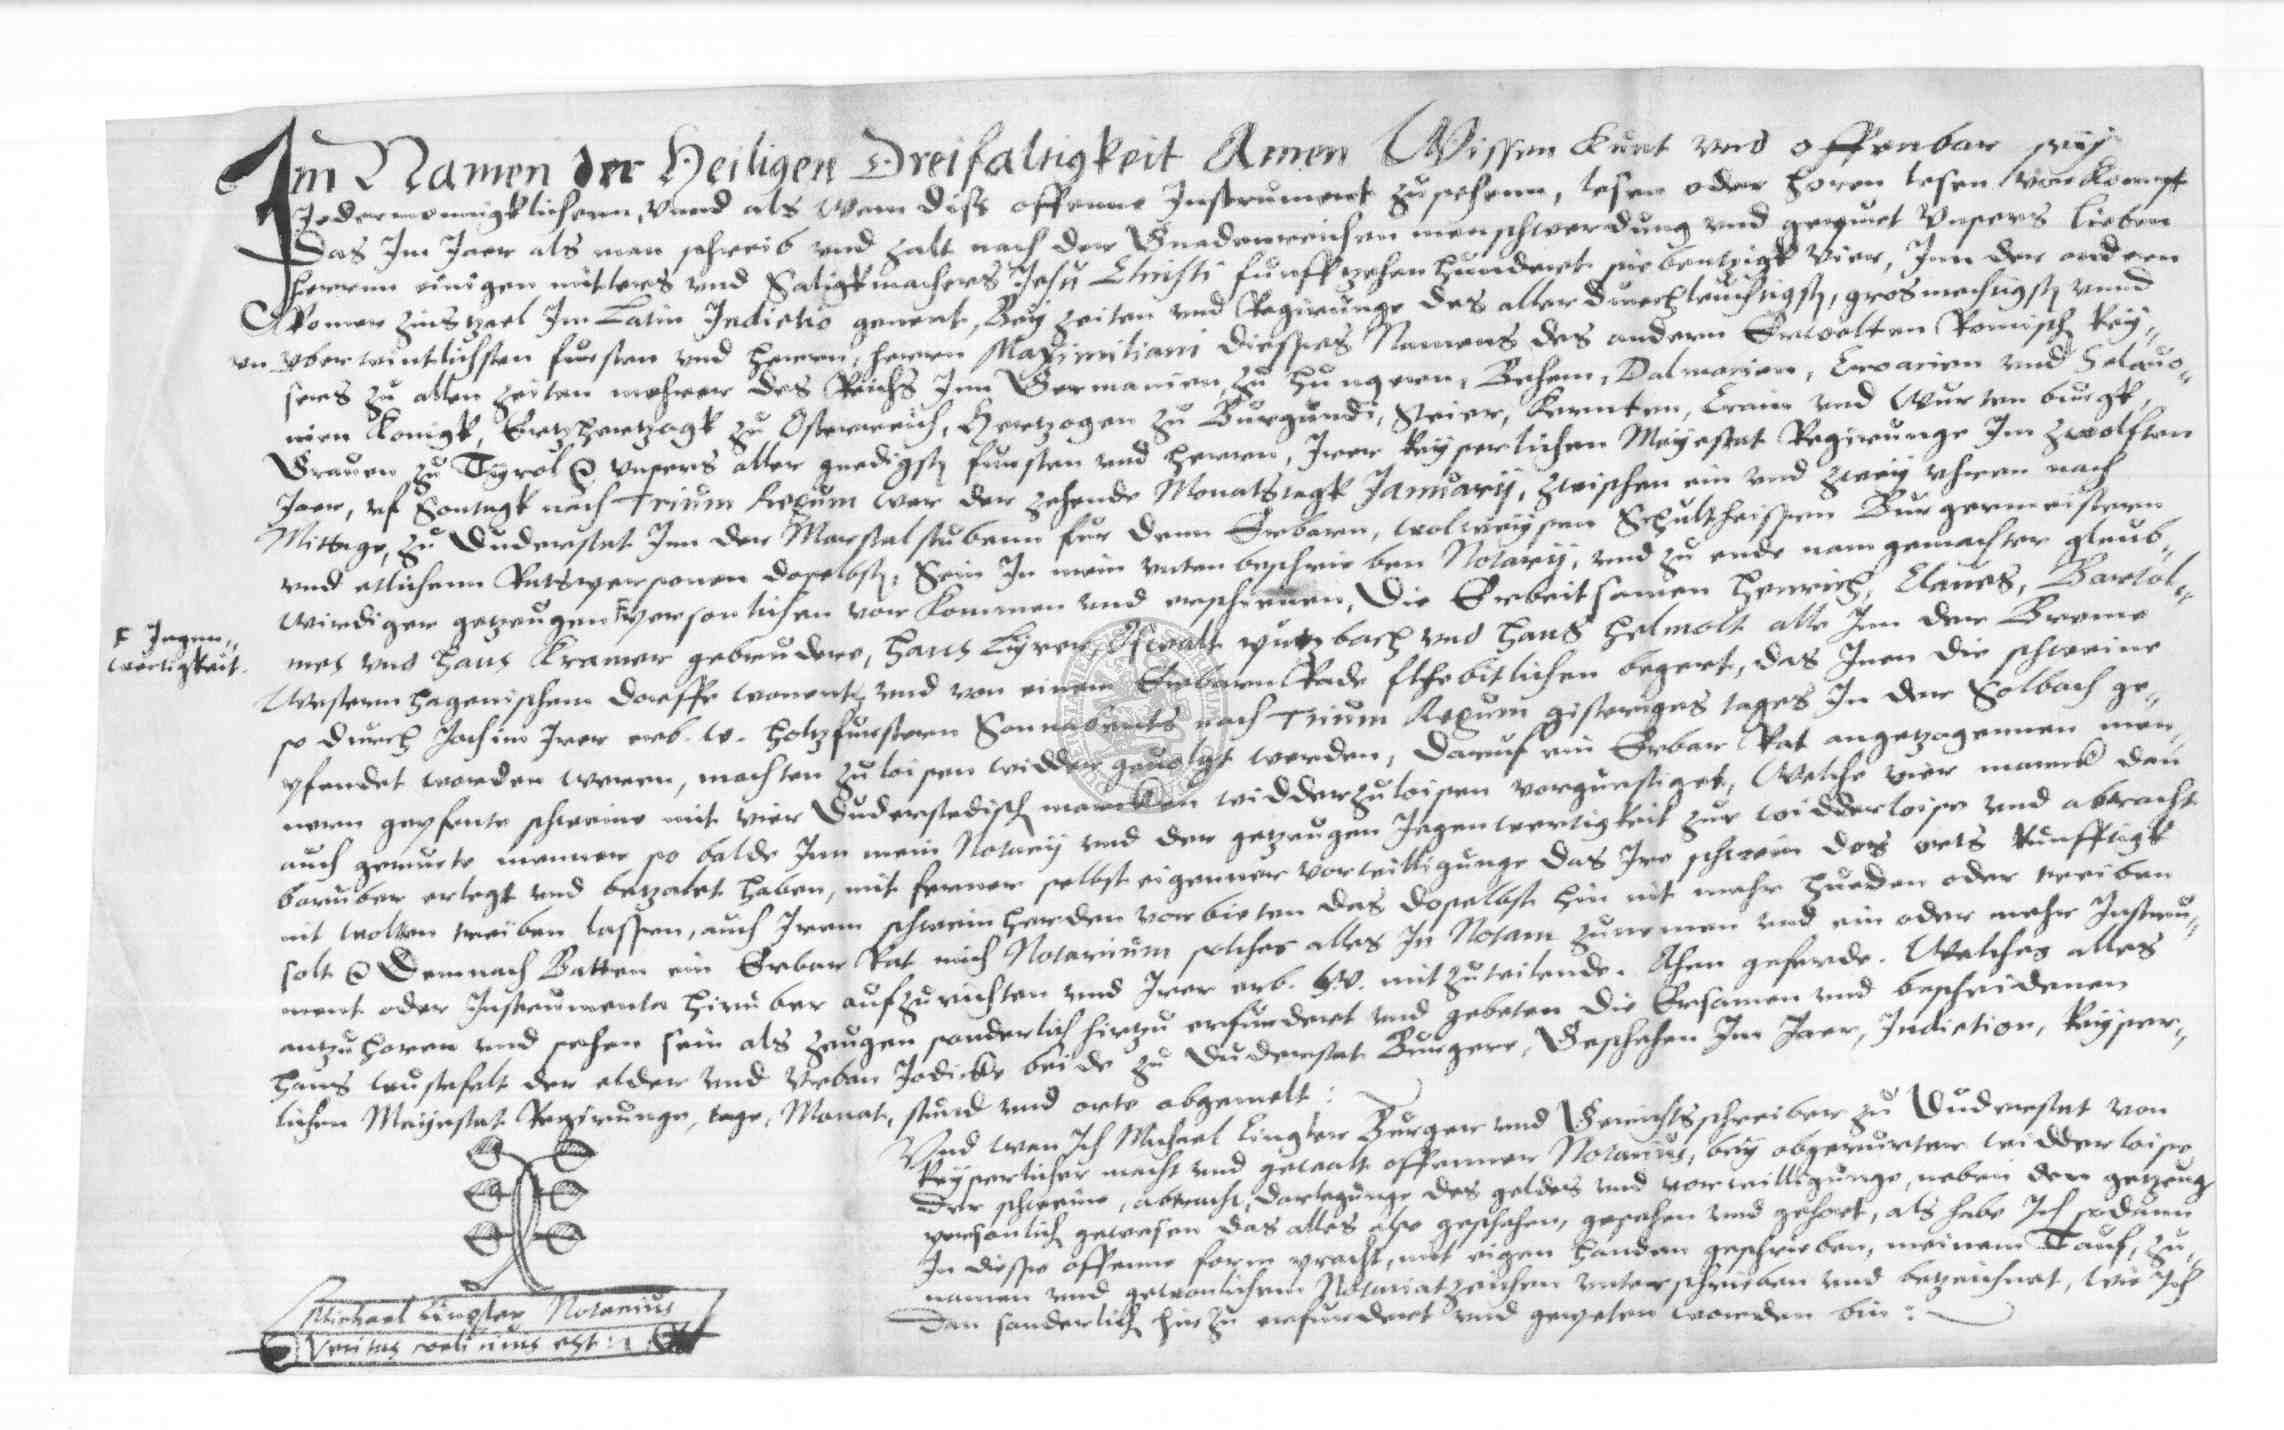 Im Namen der Heiligen Dreifaltigkeit Amen Wissen kunt vnd offenbar seÿ
Jedermennigklichenn, vnnd als wem diss offenne Instrument zusehenn, lesen oder horen lesen vorkompt
Das Im Jaer als man schreib vnd zalt nach der Gnadenreichen menschwerdung vnd gepurt Vnsers lieben
herrnn einigen mitlers vnd Saligkmachers Jesu Christi funffzehenhundert siebentzigk Vier, Inn der andern
Romer Zinszael Im Latin Indictio genent, Beÿ zeiten vnd Regirunge des allerdurchleuchtigst, grosmechtigst vnnd
vn vberwintlichsten fursten vnd herrn, herrn Maximiliani diesses Namens des andern Erwolten Romisch Keÿ-
sers zu allen Zeiten mehrer des Reichs Inn Germanien, zu hungern, Behem, Dalmacien, Croacien vnd Sclauo-
nien Konigk, Ertzhertzogk zu Osterreich, Hertzogen zu Burgundi, Steier, Kernten, Crain vnd Wurtenburgk,
Grauen zu Tÿrol &c Vnsers aller gnedigst fursten vnd herren, Irer Keÿserlichen Meÿestat Regirunge Im zwolften
Jaer, vf Sontagk nach Trium Regum war der zehende Monatstagk Januarÿ, zwischen ein vnd zweÿ vhren nach
Mittage, zu Duderstat Inn der Marstalstubenn fur denn Erbaren, wolweÿsen Schultheissen Burgermeistern
vnd etlichenn Ratspersonen doselbst, Sein In mein vntenbeschrieben Notarÿ, vnd zu ende namgemachter glaub-
wirdiger getzeugen F personlichen vorkommen vnd erschienen, Die Erbeitsamen Henrich, Claues, Bartol-
F Jegen-
wertigkeit.
mes vnd Hans Kramer gebrudere, Hans Lÿrer, Oswalt vnd Hans Helmolt alle Inn der Breme
Westernhagenischem dorffe wonent, vnd von einem Erbarn Rade begert, das Inen die schweine
so durch Jochim Irer erb. w. holtzfurstern Sonnabents nach Trium Regum gisteriges tages In der Solbach ge-
pfendet worden weren, mochten zuloisen widder geuolgt werden, Daruf ein Erbar Rat angetzogennen men-
nern gepfente schweine mit vier Duderstedisch marcken widderzuloisen vorgunstiget, Welche vier marck dan
auch gerurte menner so balde Inn mein Notarÿ vnd der getzeugen Jegenwertigkeit zur widderloise vnd abtracht
daruber erlegt vnd betzalet haben, mit ferner selbst eigenner vorwilligunge das Ire schwein des orts kunfftigk
nit wolten treiben lassen, auch Irem schweinherden vorbieten das doselbst hin nit mehr hueden oder treiben
solt &c Demnach Batten ein Erbar Rat mich Notarium solches alles In Notam zunemen vnd ein oder mehr Instru-
ment oder Instrumenta hiruber aufzurichten vnd Irer erb. W. mitzuteilende. Ahen geferde. Welches alles
antzuhoren vnd sehen sein als zeugen sonderlich hirtzu erfurdert vnd gebeten die Ersamen vnd bescheidenen
Hans Wustefelt der elder vnd Vrban Jodicke beide zu Duderstat Burgere, Geschehen Im Jaer, Indiction, Keÿser-
lichen Maÿestat Regirunge, tage, Monat, stund vnd orte abgemelt:
Vnd wan Ich Michael Lingker Burger vnd Gerichtsschreiber zu Duderstat von
Keÿserlicher macht vnd gewalt offenner Notarius, beÿ obgerurter widderloise
der schweine, abtracht, darlegunge des geldes vnd vorwilligunge, neben den getzeug
personlich gewesen das alles also geschehen, gesehen vnd gehort, als habe Ich sodann
In diesse offenne form pracht, mit eigen handen geschrieben, meinem Tauf, zu-
namen vnd gewonlichem Notariatzeichen vnterschrieben vnd betzeichnet, wie Ich
dan sonderlich hirzu erfurdert vnd gepeten worden bin:
Michael Lingker Notarius
Veritas est: